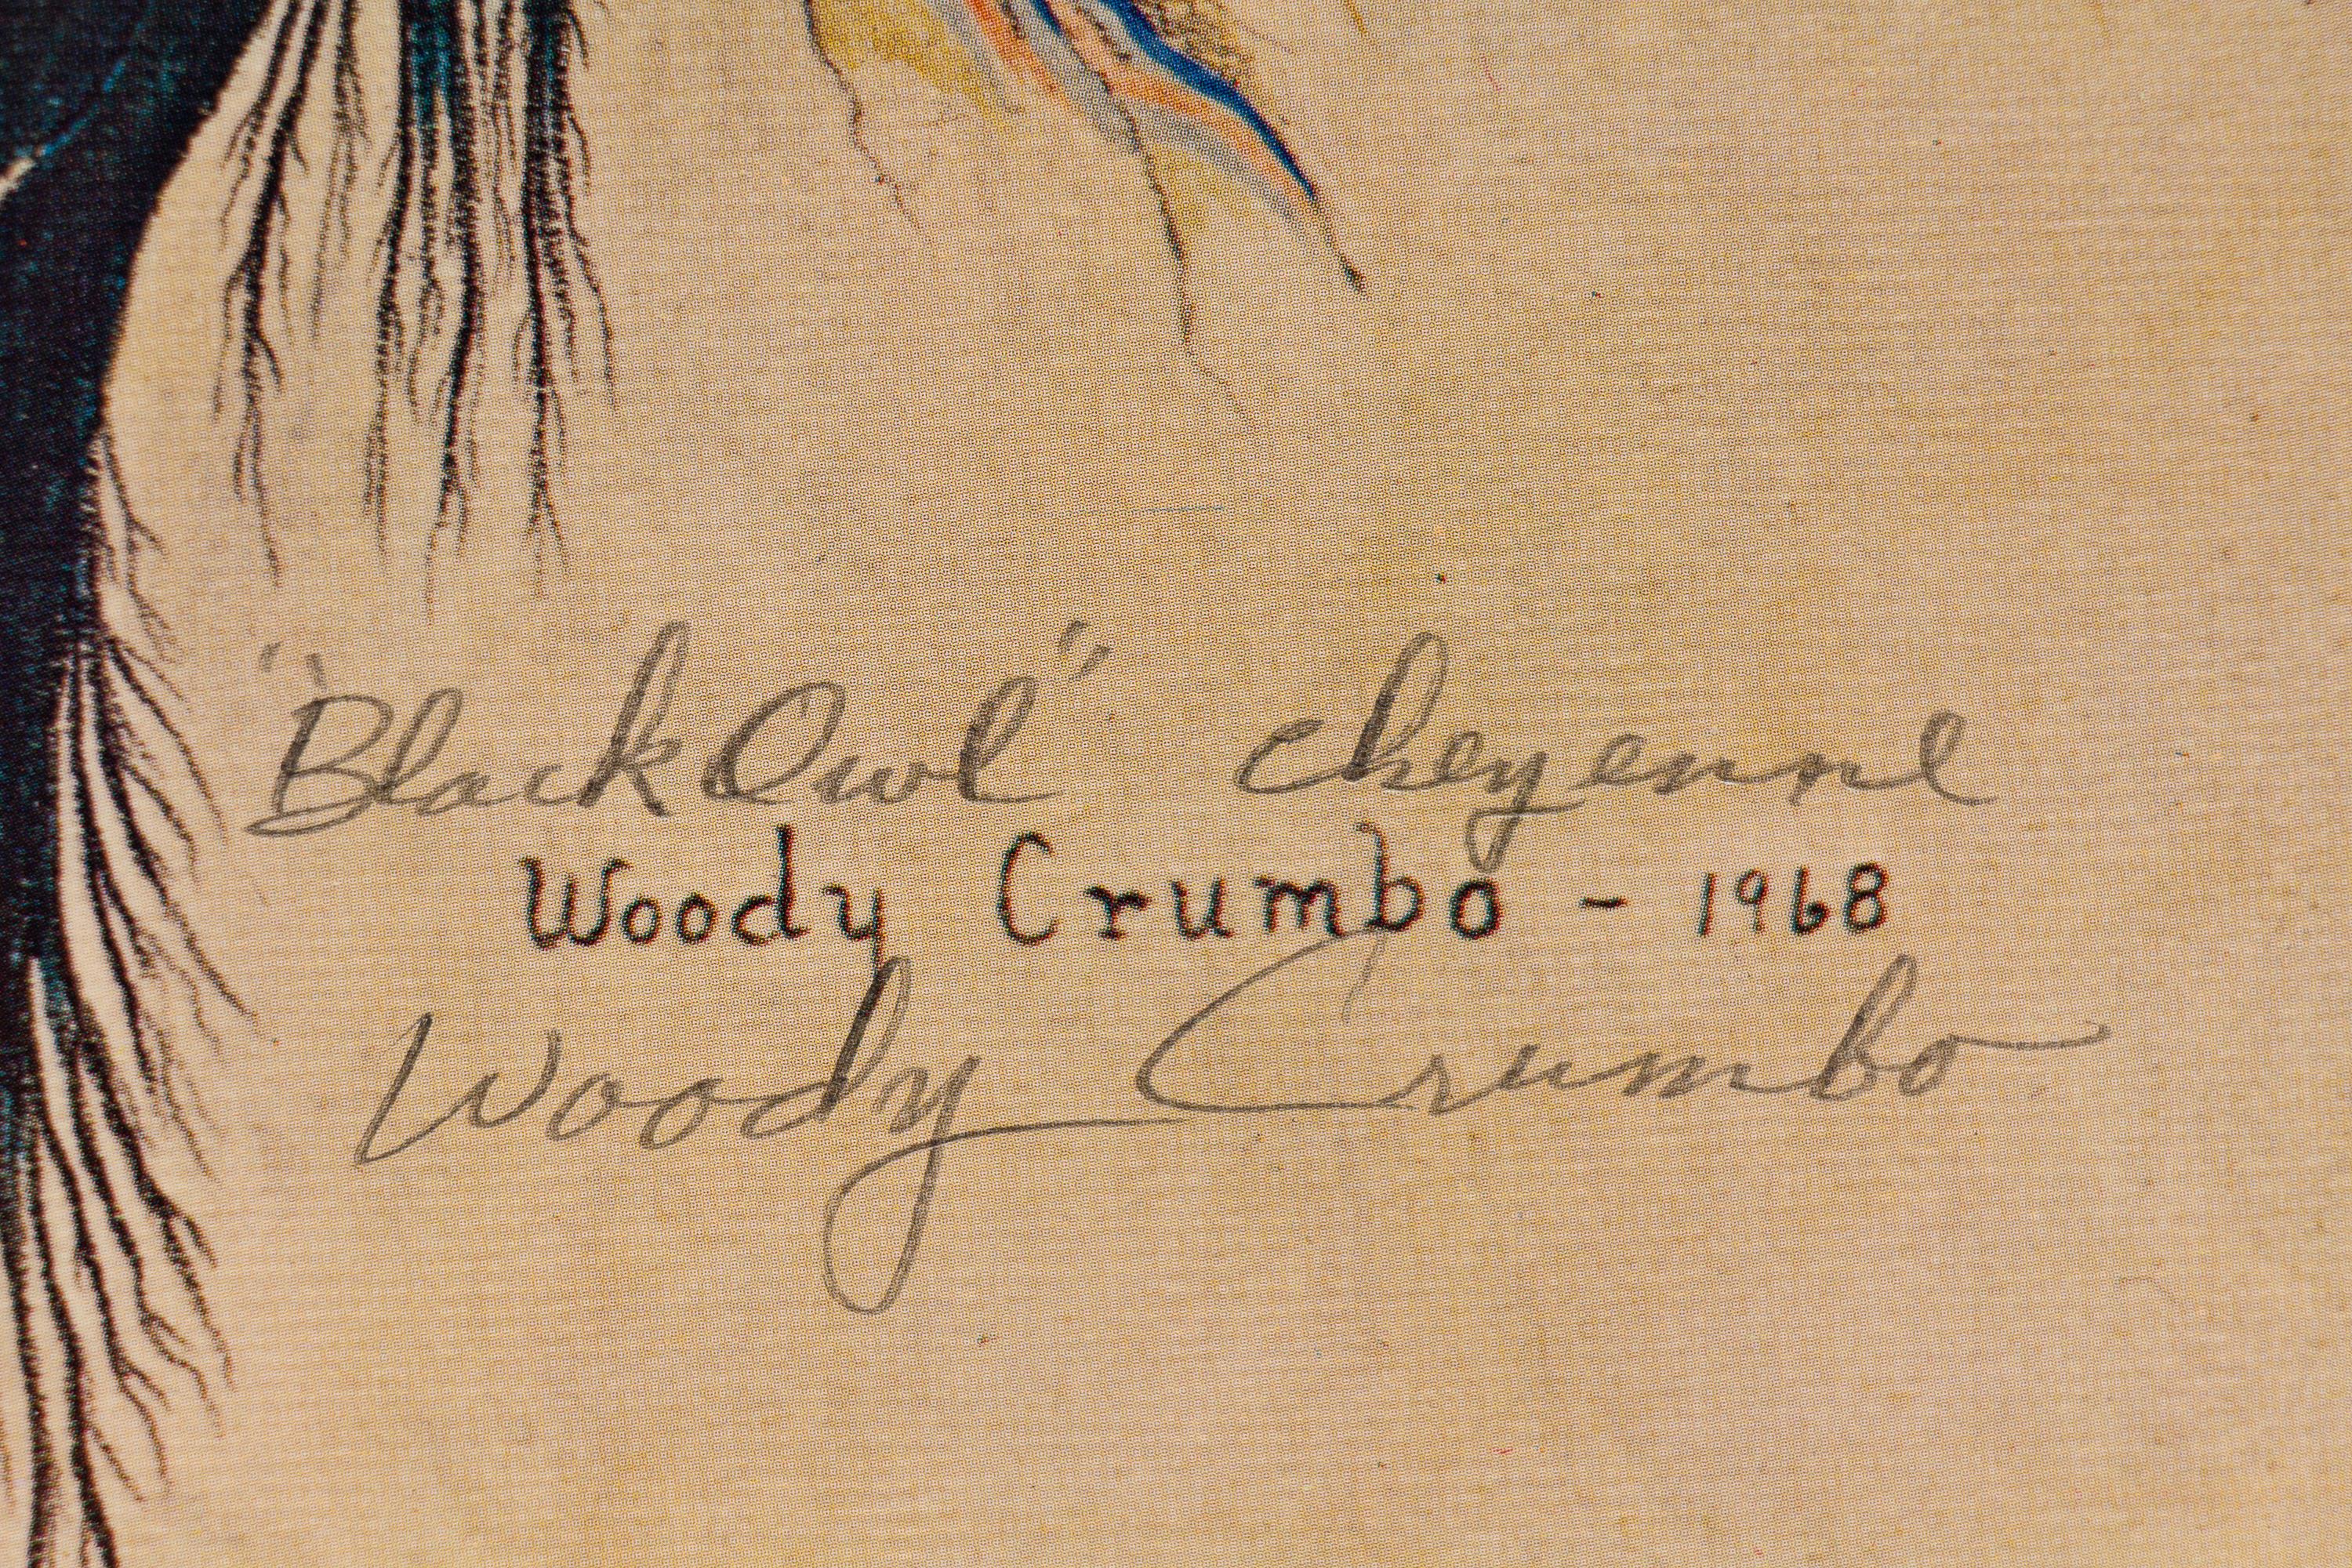 "Black Owl" Cheyenne
Woody Crumbo - 1968
Woody Crumbo